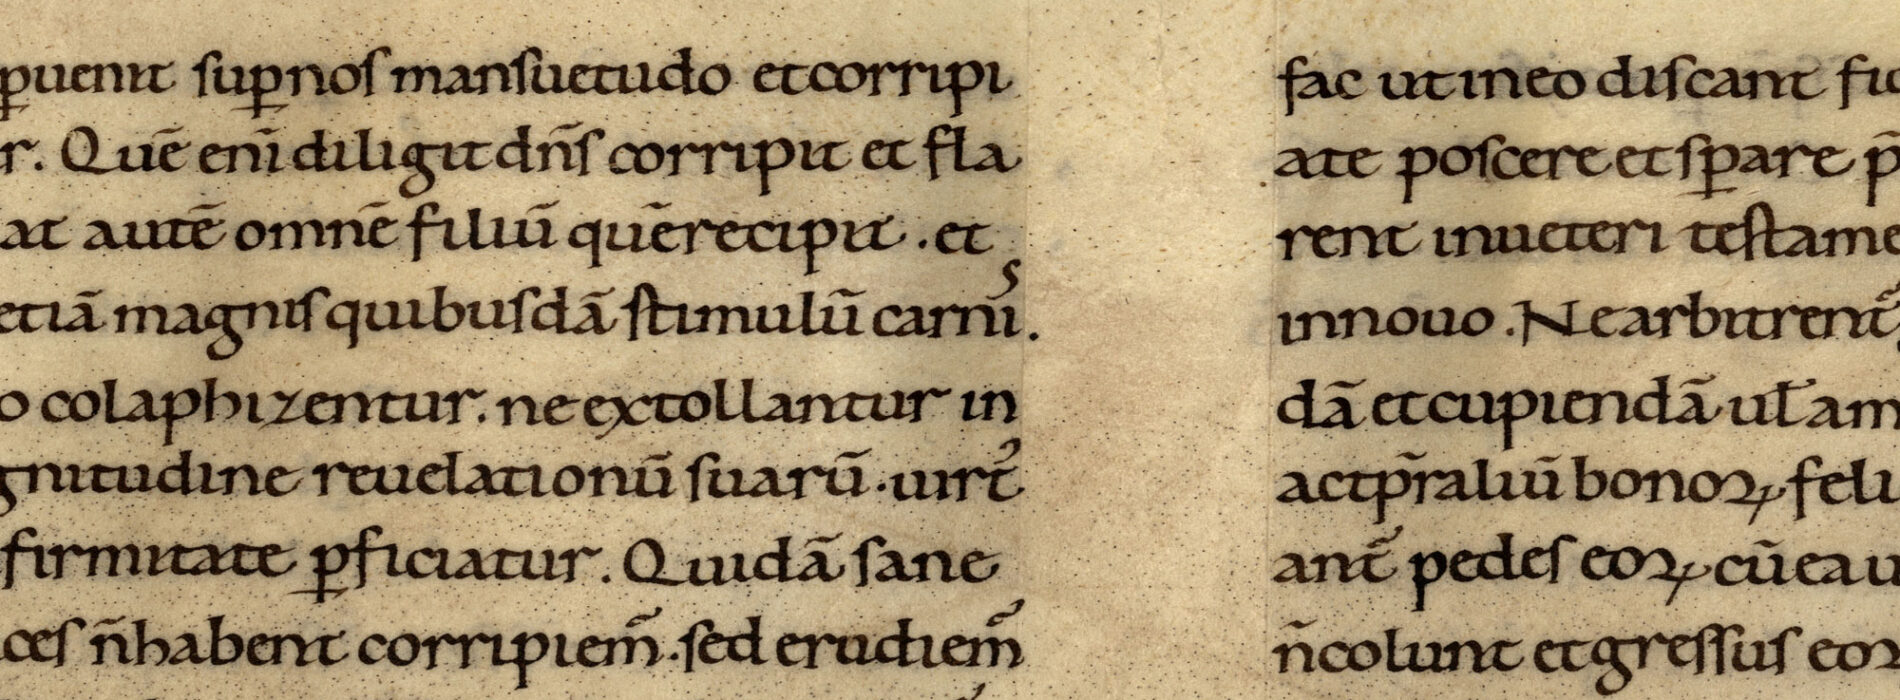 ꝑuenit suꝑ nos mansuetudo et corripi
r. Quē enī diligit dn̄s corripit et fla
at autē omnē filiū quē recipit . et
etiā magnis quibusdā stimulū carnis.
o colaphizentur. ne extollantur in
gnitudine reuelationū suarū. uirt᷑
firmitate ꝑficiatur. Quidā sane
ces n̄ habent corripiem᷑. sed erudiem᷑
fac ut in eo discant fid
ate poscere et sꝑare p̄
rent in ueteri testame
in nouo . Ne arbitrent᷑
dā et cupiendā ul̄ am
ac tp̄raliū bonoꝝ feli
ant᷑ pedes eoꝝ cū ea u
n̄ colunt et gressus eoꝝ